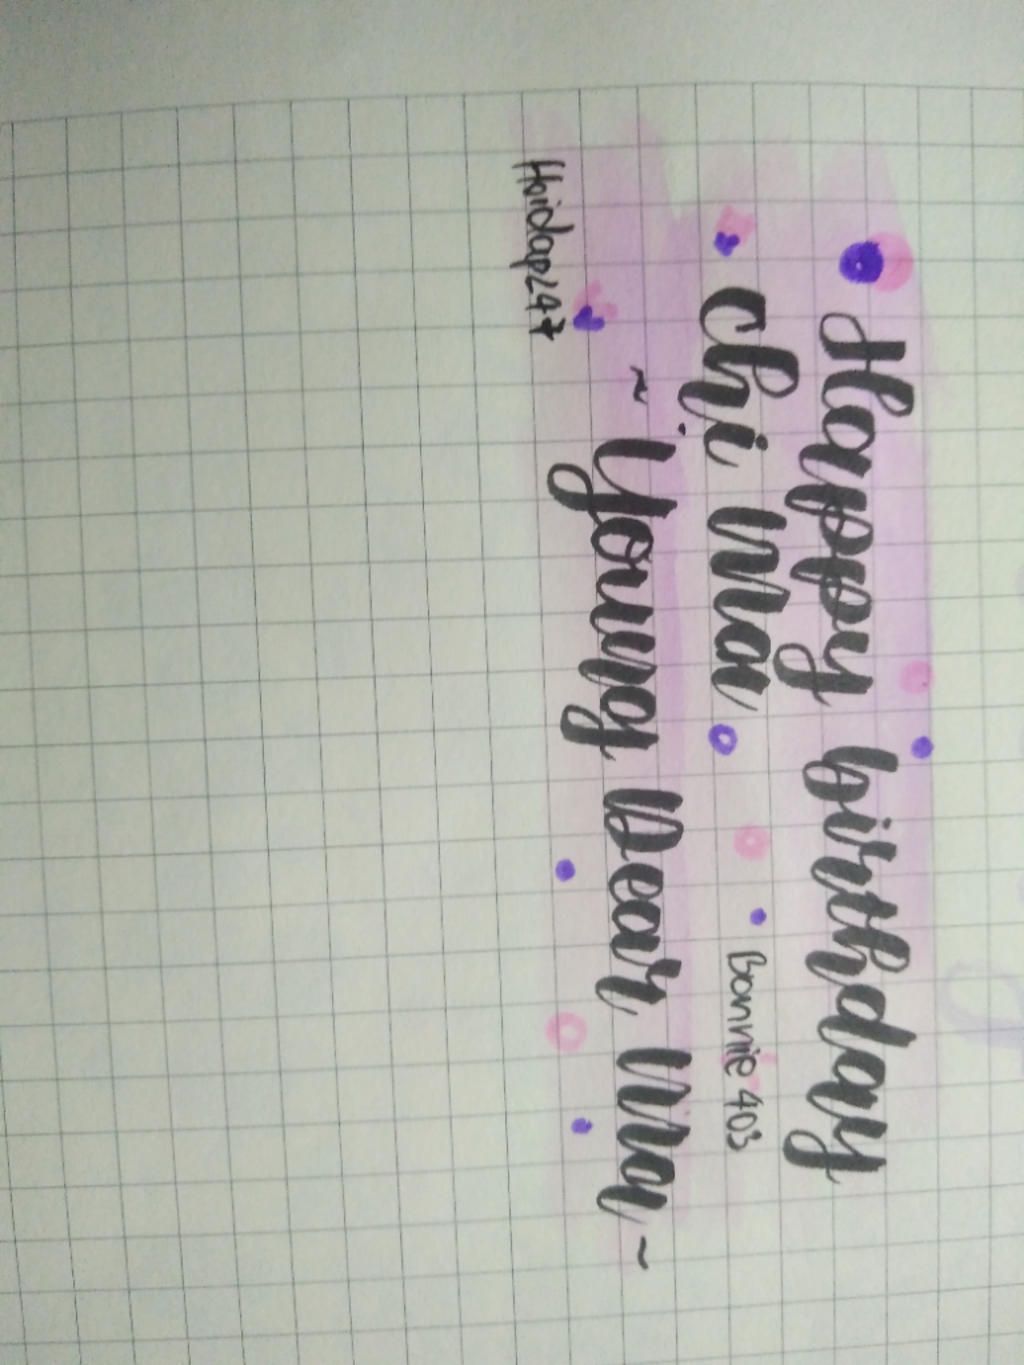 Happy birthday
Chi Ma
Bonnie 403
~ Young Dear Ma ~
Hoidap247